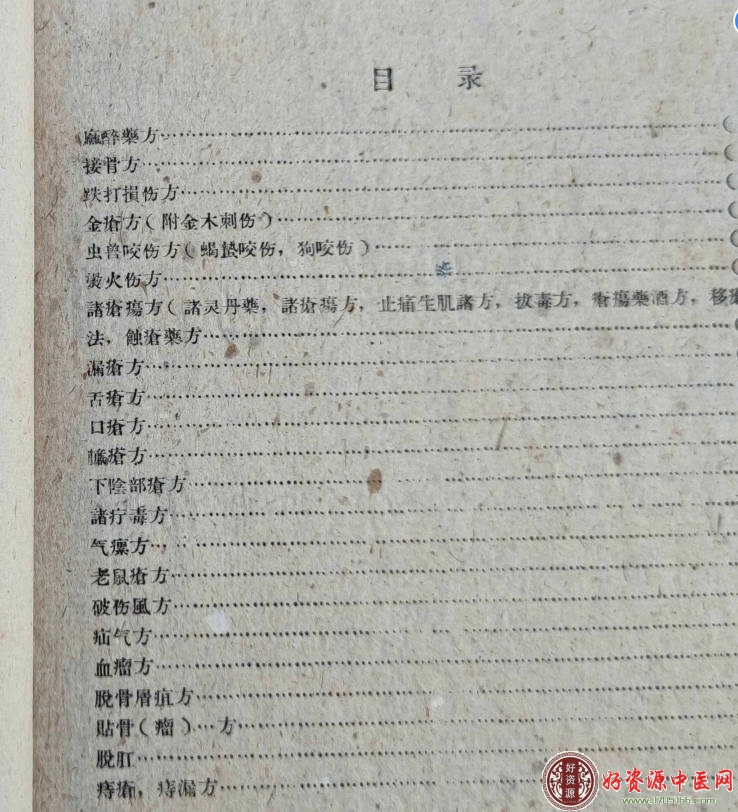 目 录
麻醉藥方……………………(
接骨方……………………(
跌打損伤方……………………(
金瘡方(附金木刺伤)……………………(
虫兽咬伤方(蝎蟄咬伤，狗咬伤)……………………(
烫火伤方……………………(
諸瘡瘍方(諸灵丹藥，諸瘡瘍方，止痛生肌諸方，拔毒方，瘡瘍藥酒方，移瘡
法，蝕瘡藥方……………………(
漏瘡方……………………
舌瘡方……………………
口瘡方……………………
臁瘡方……………………
下陰部瘡方……………………
諸疔毒方……………………
气瘰方……………………
老鼠瘡方……………………
破伤風方……………………
疝气方……………………
血瘤方……………………
脫骨屑疽方……………………
貼骨(瘤)…方……………………
脫肛……………………
痔瘡，痔漏方……………………
好资源
好资源中医网